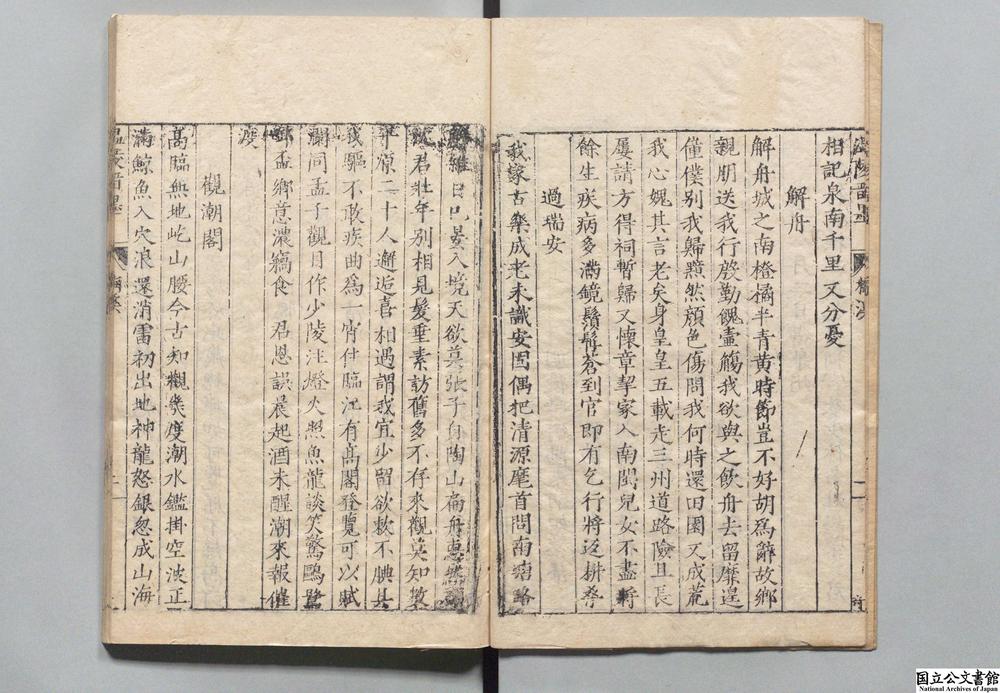 相記泉南千里又分憂
解舟
解舟城之南橙橘半青黃時節豈不好胡為辭故鄉
親朋送我行慇勤餽壷觴我欲與之飲舟去留靡遑
僮僕別我歸黯然顔色傷問我何時還田園又成荒
我心媿其言老矣身皇皇五載走三州道路險且長
屢請方得祠暫歸又懷章挈家入南閩兒女不盡將
餘生疾病多滿鏡鬚髯蒼到官即有乞行將返耕桑
過瑞安
我家古樂成老未識安固偶把清源麾首問南宿路
日已晏入境天欲莫張子自陶山扁舟惠
君壯年別相見髮垂素訪舊多不存來觀莫知數
平原二十人邂逅喜相過謂我宜少留欲救不腆具
我驅不敢疾曲為一宵住臨江有髙閣登覽可以賦
瀾同孟子觀月作少陵注燈火照魚龍談笑驚鷗鷺
盃鄉意濃竊食 君恩誤晨起酒未醒潮來報催
渡
觀潮閣
髙臨無地屹山腰今古知觀幾度潮水鑑掛空波正
滿鯨魚入穴浪還消雷初出地神龍怒銀忽成山海
国立公文書館
National Archives of Japan